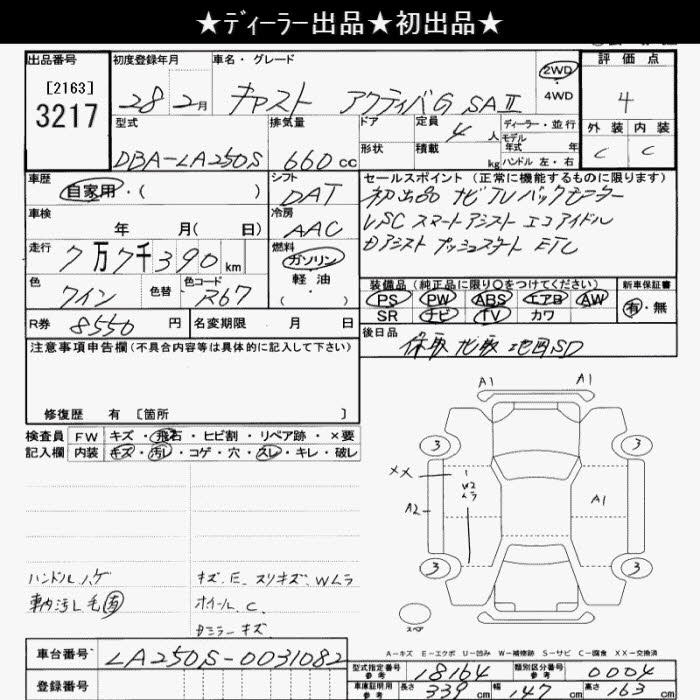 ★ディーラー出品★初出品★
出品番号
[2163]
3217
初度登録年月
28年2月
車名・グレード
キャスト アクティバG SAⅡ
2WD
4WD
評価点
4
外装 内装
C C
型式
DBA-LA250S
排気量
660cc
ドア
定員
4人
形状
積載
kg
ディーラー・並行
モデル
年式 年
ハンドル 左・右
車歴
自家用・( )
シフト
DAT
セールスポイント(正常に機能するものに限ります)
初出品 ナビTVバックモニター
VSC スマートアシスト エコアイドル
Bアシスト プッシュスタート ETC
車検
年 月( 日)
冷房
AAC
走行
7万7千390km
燃料
ガソリン
軽油
( )
色
ワイン
色替
色コード
R67
装備品(純正品に限り○をつけてください)
PS PW ABS エアB AW
SR ナビ TV カワ
新車保証書
有・無
R券
8550円
名変期限 月 日
後日品
保取 ナビ取 地図SD
注意事項申告欄(不具合内容等は具体的に記入して下さい)
修復歴 有 [箇所 ]
検査員
記入欄
FW キズ・飛石・ヒビ割・リペア跡・×要
内装 キズ・汚レ・コゲ・穴・スレ・キレ・破レ
A1 A1
3 3
XX
W2
ムラ
A2
A1
3 3
スペア
ハンドルハゲ
車内汚レ毛有
キズ.E.スリキズ.Wムラ
ホイールC.
Dミラーキズ
A-キズ E-エクボ U-凹み W-補修跡 S-サビ C-腐食 XX-交換済
車台番号
LA250S-0031082
登録番号
型式指定番号
参考
18164
類別区分番号
参考
0004
車庫証明用
参考
長さ 339cm 幅 147cm 高さ 163cm